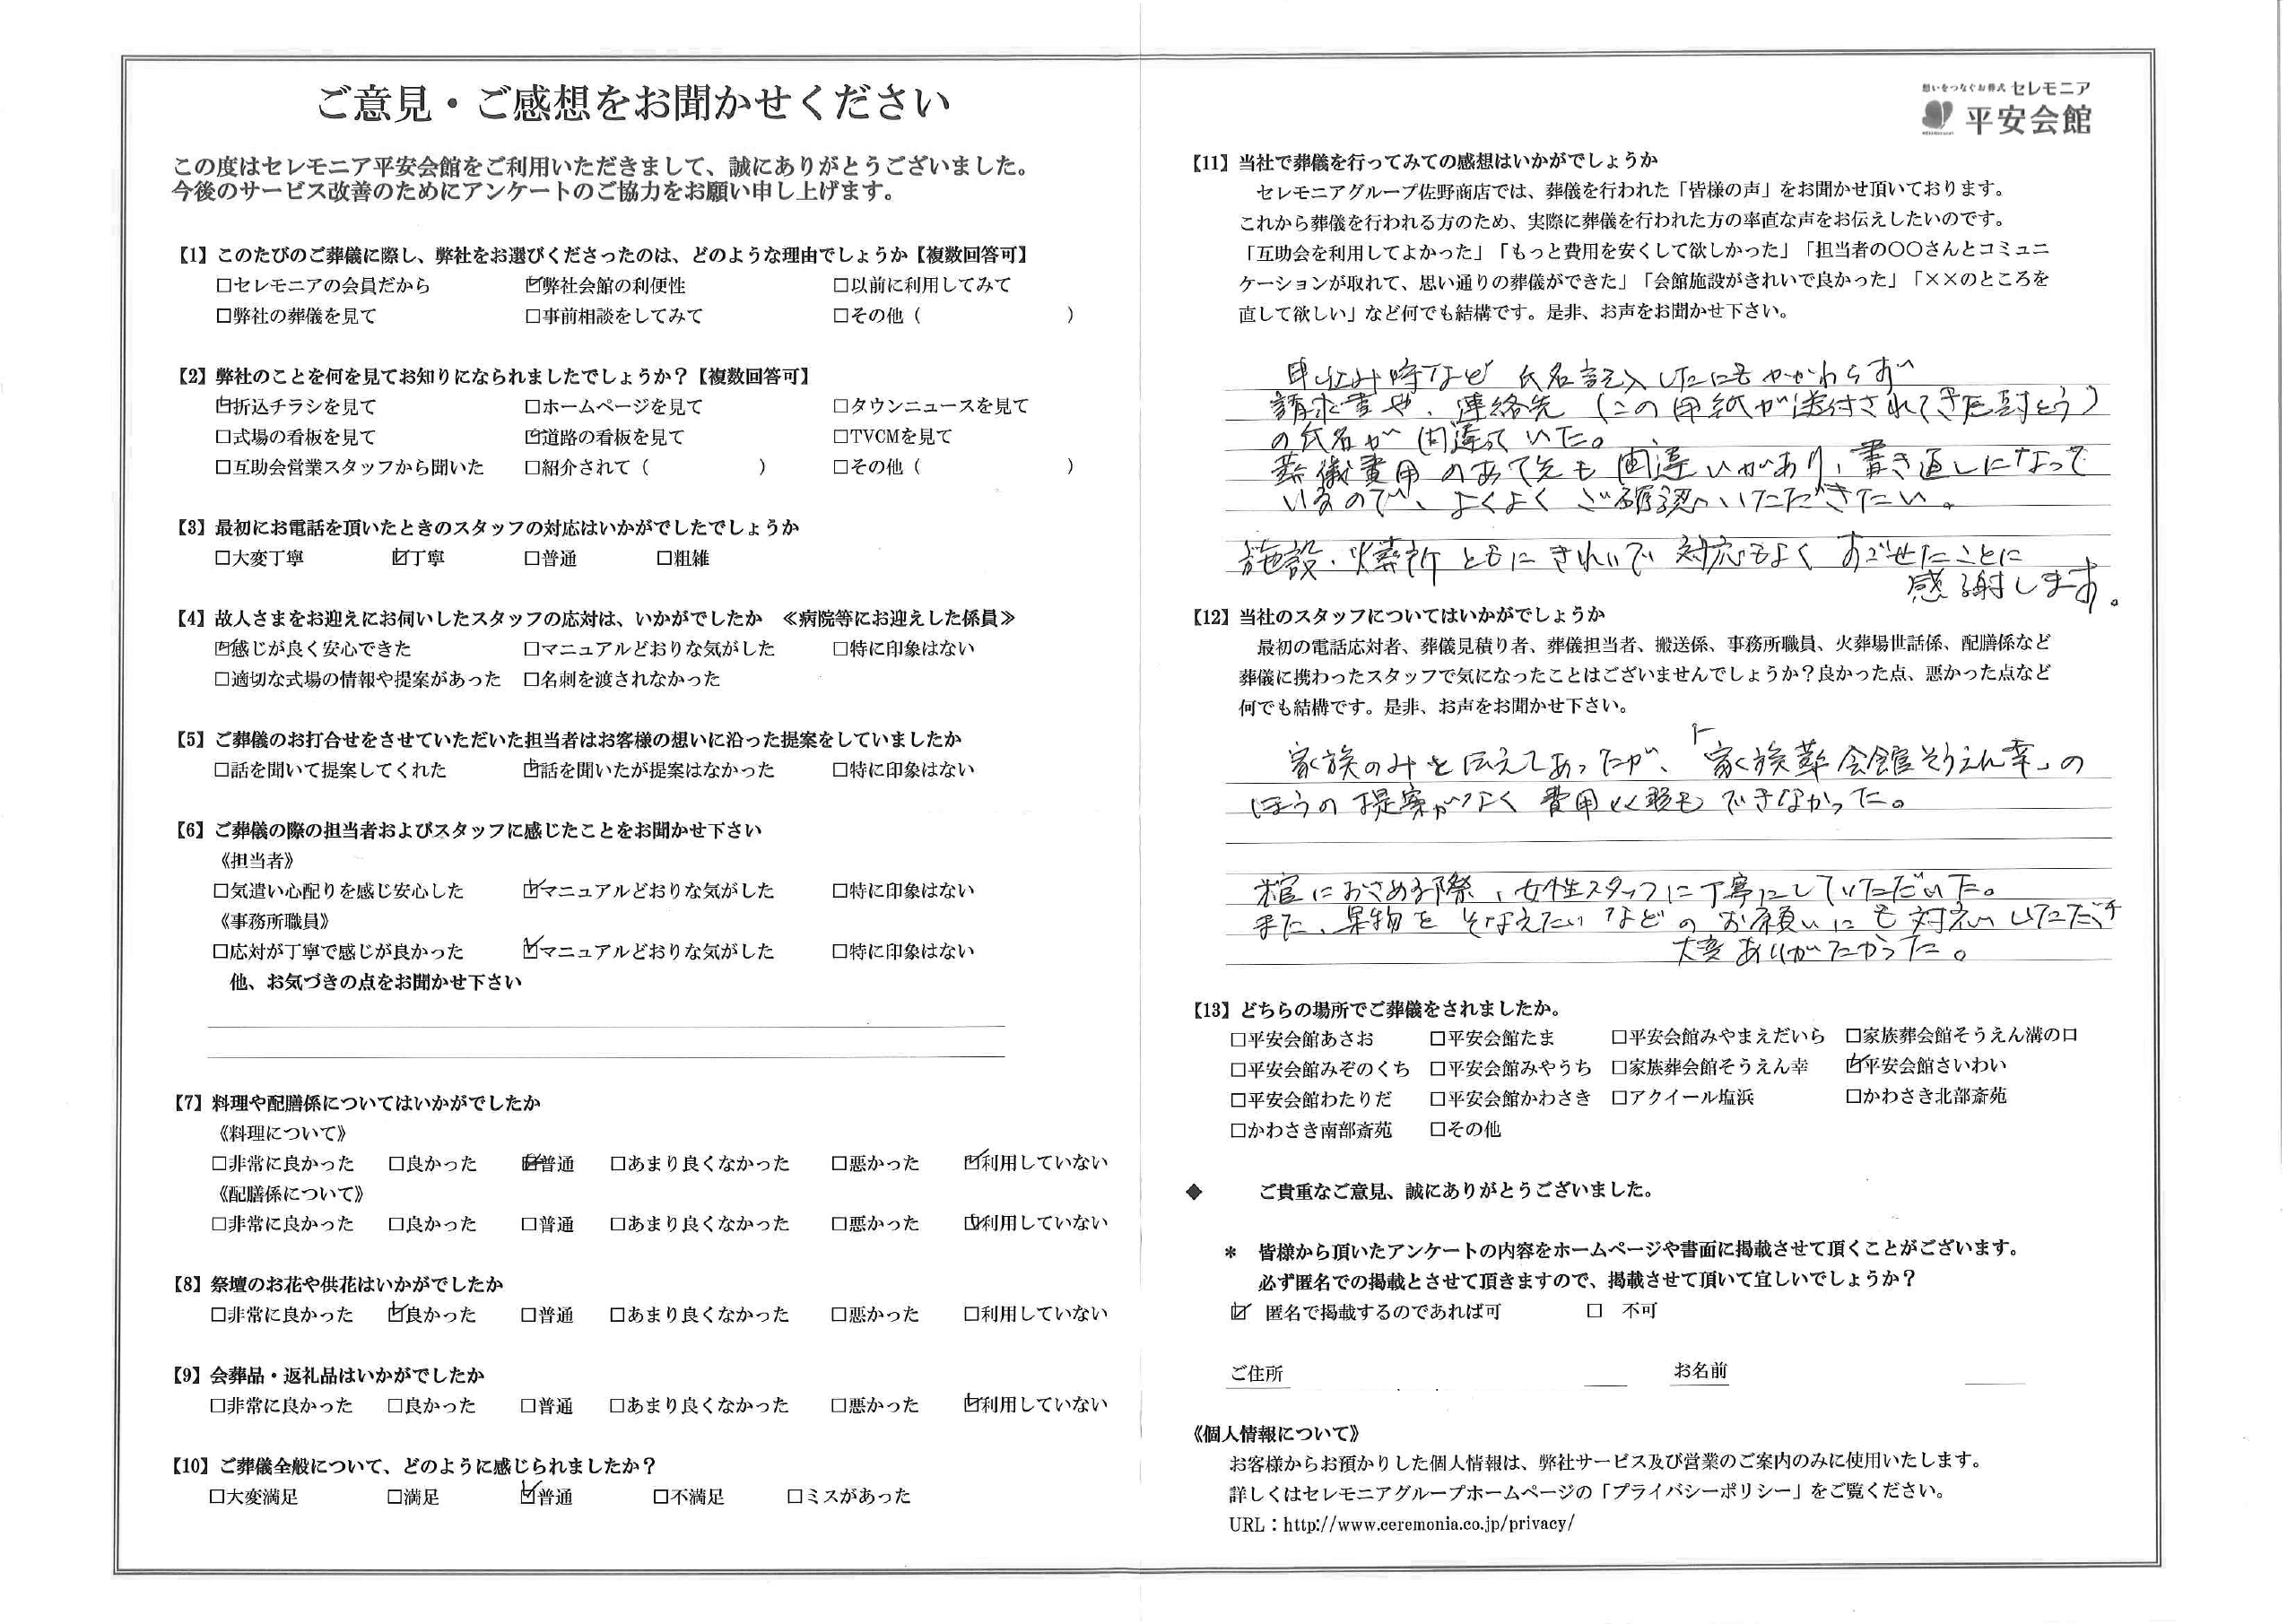 ご意見・ご感想をお聞かせください
この度はセレモニア平安会館をご利用いただきまして、誠にありがとうございました。
今後のサービス改善のためにアンケートのご協力をお願い申し上げます。
【1】このたびのご葬儀に際し、弊社をお選びくださったのは、どのような理由でしょうか【複数回答可】
□セレモニアの会員だから ☑弊社会館の利便性 □以前に利用してみて
□弊社の葬儀を見て □事前相談をしてみて □その他（ ）
【2】弊社のことを何を見てお知りになられましたでしょうか？【複数回答可】
☑折込チラシを見て □ホームページを見て □タウンニュースを見て
□式場の看板を見て ☑道路の看板を見て □TVCMを見て
□互助会営業スタッフから聞いた □紹介されて（ ） □その他（ ）
【3】最初にお電話を頂いたときのスタッフの対応はいかがでしたでしょうか
□大変丁寧 ☑丁寧 □普通 □粗雑
【4】故人さまをお迎えにお伺いしたスタッフの応対は、いかがでしたか ≪病院等にお迎えした係員≫
☑感じが良く安心できた □マニュアルどおりな気がした □特に印象はない
□適切な式場の情報や提案があった □名刺を渡されなかった
【5】ご葬儀のお打合せをさせていただいた担当者はお客様の想いに沿った提案をしていましたか
□話を聞いて提案してくれた ☑話を聞いたが提案はなかった □特に印象はない
【6】ご葬儀の際の担当者およびスタッフに感じたことをお聞かせ下さい
《担当者》
□気遣い心配りを感じ安心した ☑マニュアルどおりな気がした □特に印象はない
《事務所職員》
□応対が丁寧で感じが良かった ☑マニュアルどおりな気がした □特に印象はない
他、お気づきの点をお聞かせ下さい
【7】料理や配膳係についてはいかがでしたか
《料理について》
□非常に良かった □良かった ☑普通 □あまり良くなかった □悪かった ☑利用していない
《配膳係について》
□非常に良かった □良かった □普通 □あまり良くなかった □悪かった ☑利用していない
【8】祭壇のお花や供花はいかがでしたか
□非常に良かった ☑良かった □普通 □あまり良くなかった □悪かった □利用していない
【9】会葬品・返礼品はいかがでしたか
□非常に良かった □良かった □普通 □あまり良くなかった □悪かった ☑利用していない
【10】ご葬儀全般について、どのように感じられましたか？
□大変満足 □満足 ☑普通 □不満足 □ミスがあった
想いをつなぐお葬式 セレモニア
平安会館
【11】当社で葬儀を行ってみての感想はいかがでしょうか
セレモニアグループ佐野商店では、葬儀を行われた「皆様の声」をお聞かせ頂いております。
これから葬儀を行われる方のため、実際に葬儀を行われた方の率直な声をお伝えしたいのです。
「互助会を利用してよかった」「もっと費用を安くして欲しかった」「担当者の〇〇さんとコミュニ
ケーションが取れて、思い通りの葬儀ができた」「会館施設がきれいで良かった」「××のところを
直して欲しい」など何でも結構です。是非、お声をお聞かせ下さい。
申込み時など 氏名記入したにもかかわらず
請求書や、連絡先（この用紙が送付されてきた封とう）
の氏名が間違っていた。
葬儀費用のあて先も間違いがあり、書き直しになって
いるので、よくよくご確認いただきたい。
施設・火葬所ともにきれいで対応もよくすごせたことに
感謝します。
【12】当社のスタッフについてはいかがでしょうか
最初の電話応対者、葬儀見積り者、葬儀担当者、搬送係、事務所職員、火葬場世話係、配膳係など
葬儀に携わったスタッフで気になったことはございませんでしょうか？良かった点、悪かった点など
何でも結構です。是非、お声をお聞かせ下さい。
家族のみと伝えてあったが、「家族葬会館そうえん幸」の
ほうの提案がなく費用比較もできなかった。
棺におさめる際、女性スタッフに丁寧にしていただいた。
また、果物をそなえたいなどのお願いにも対応いただき
大変ありがたかった。
【13】どちらの場所でご葬儀をされましたか。
□平安会館あさお □平安会館たま □平安会館みやまえだいら □家族葬会館そうえん溝の口
□平安会館みぞのくち □平安会館みやうち □家族葬会館そうえん幸 ☑平安会館さいわい
□平安会館わたりだ □平安会館かわさき □アクイール塩浜 □かわさき北部斎苑
□かわさき南部斎苑 □その他
◆ ご貴重なご意見、誠にありがとうございました。
＊ 皆様から頂いたアンケートの内容をホームページや書面に掲載させて頂くことがございます。
必ず匿名での掲載とさせて頂きますので、掲載させて頂いて宜しいでしょうか？
☑ 匿名で掲載するのであれば可 □ 不可
ご住所 お名前
《個人情報について》
お客様からお預かりした個人情報は、弊社サービス及び営業のご案内のみに使用いたします。
詳しくはセレモニアグループホームページの「プライバシーポリシー」をご覧ください。
URL：http://www.ceremonia.co.jp/privacy/